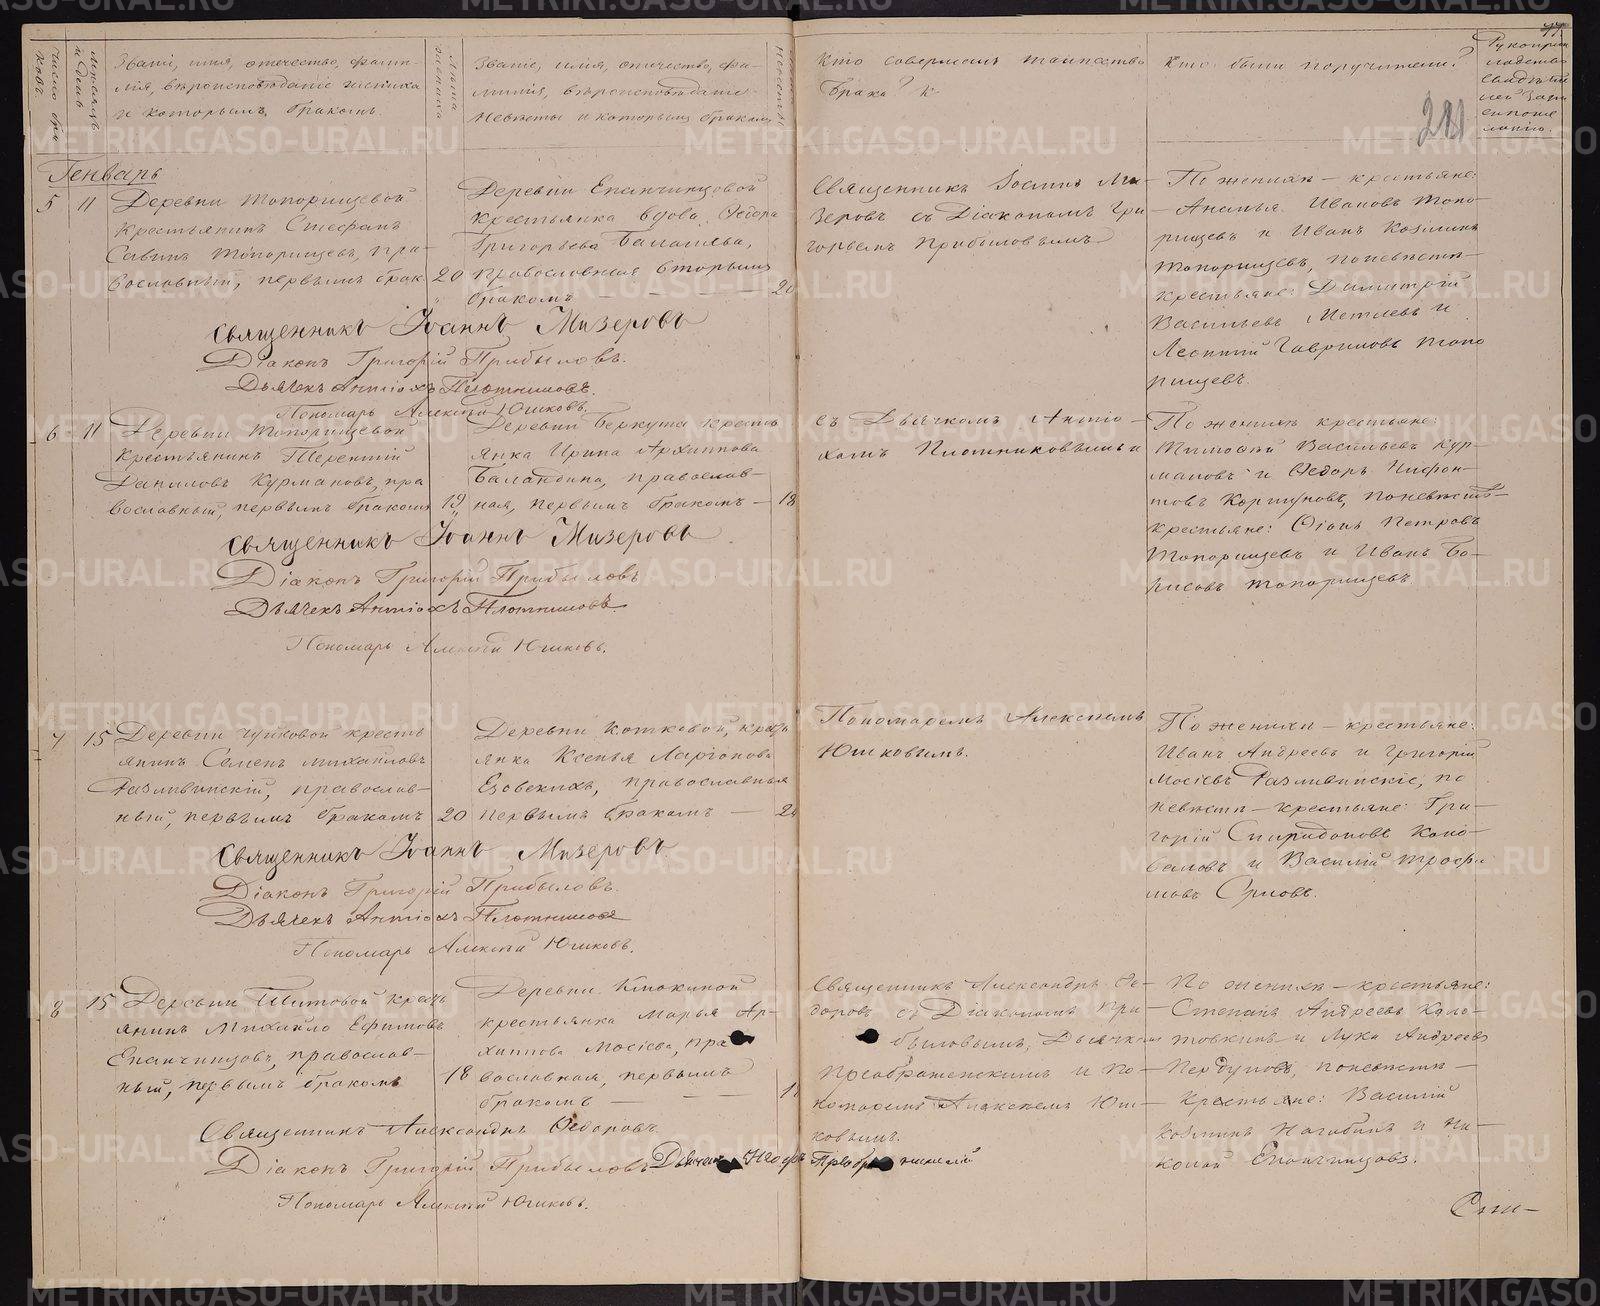 Число бра
ковъ.
Мѣсяцъ
и день
Званіе, имя, отчество, фами-
лія, вѣроисповѣданіе жениха
и которымъ бракомъ.
Лѣта
жениха
Званіе, имя, отчество, фа-
милія, вѣроисповѣданіе
невѣсты и которымъ бракомъ
невѣсты
Кто совершалъ таинство
брака?
Кто были поручители?
Рукопри
кладство
свидѣтел
ей запи
си по же
ланію.
Генварь
5
11
Деревни Топорищевой
крестьянинъ Стефанъ
Савинъ Топорищевъ, пра-
вославный, первымъ брак.
20
Деревни Епанчинцовой
крестьянка вдова Ѳедора
Григорьева
православная вторымъ
бракомъ
20
Священникъ Іоаннъ Ми-
зеровъ съ Діакономъ Гри
горьемъ Прибыловымъ
По женихѣ – крестьяне:
Ананья Ивановъ Топо-
рищевъ и Иванъ Козминъ
Топорищевъ, по невѣстѣ-
крестьяне: Димитрій
Васильевъ Метлевъ и
Леонтій Гавриловъ Топо
рищевъ.
Священникъ Іоаннъ Мизеровъ
Діаконъ Григорій Прибыловъ.
Дьячекъ Антіохъ Плотниковъ.
Пономарь Алексѣй Юшковъ.
6
11
Деревни Топорищевой
крестьянинъ Терентій
Даниловъ Курмановъ, пра
вославный, первымъ бракомъ
19
Деревни Беркута кресть
янка Ирина Архиппова
Баландина, православ-
ная, первымъ бракомъ –
18
съ Дьячкомъ Антіо-
хомъ Плотниковымъ и
По женихѣ крестьяне:
Тимофей Васильевъ Кур-
мановъ и Ѳедоръ Нифон-
товъ Коршуновъ, по невѣстѣ-
крестьяне: Петровъ
Топорищевъ и Иванъ Бо-
рисовъ Топорищевъ.
Священникъ Іоаннъ Мизеровъ
Діаконъ Григорій Прибыловъ
Дьячекъ Антіохъ Плотниковъ.
Пономарь Алексѣй Юшковъ.
7
15
Деревни Чупковой кресть
янинъ Семенъ Михайловъ
Разливинскій, православ-
ный, первымъ бракомъ
20
Деревни Котковой, кресть
янка Ксенья Ларіонова
Езовскихъ, православная
первымъ бракомъ –
Пономаремъ Алексѣемъ
Юшковымъ.
По женихѣ – крестьяне:
Иванъ Андреевъ и Григорій
Мосіевъ Разливинскіе, по
невѣстѣ – крестьяне: Гри-
горій Спиридоновъ Коно-
валовъ и Василій Трофи
мовъ
Священникъ Іоаннъ Мизеровъ
Діаконъ Григорій Прибыловъ.
Дьячекъ Антіохъ Плотниковъ
Пономарь Алексѣй Юшковъ.
8
15
Деревни Титовой кресть
янинъ Михайло Ефимовъ
Епанчинцовъ, православ-
ный, первымъ бракомъ
18
Деревни Клюкиной
крестьянка Марья Ар-
хиппова Мосіева, пра
вославная, первымъ
бракомъ –
Священникъ Александръ Ѳе-
доровъ съ Діакономъ При-
быловымъ, Дьячкомъ
Преображенскимъ и По-
номаремъ Алексѣемъ Юш-
ковымъ.
По женихѣ – крестьяне:
Степанъ Андреевъ Коло-
товкинъ и Лука Андреевъ
Пердуновъ, по невѣстѣ –
крестьяне: Василій
Козминъ Нагибинъ и Ни-
колай Епанчинцовъ.
Священникъ Александръ Ѳедоровъ.
Діаконъ Григорій Прибыловъ. Дьячекъ Преображенскій
Пономарь Алексѣй Юшковъ.
METRIKI.GASO-URAL.RU